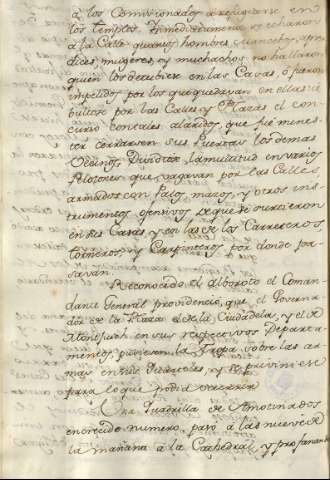 à los Comisionados a refugiarse en
los templos. Inmediatamente se echaron
a la Calle quantos hombres, mancebos, apren
dices, mugeres, y muchachos no hallaron
quien los detubiese en las Casas, o fueron
impelidos por los que quedavan en ellas: se
por las Calles y Plazas el con
curso con tales alaridos, que fué menes-
ter cerrarsen sus Puertas los demas
Vecinos. Dividióse la multitud en varios
Pelotones que vagavan por las Calles
armados con Palos, mazos, y otros ins-
trumentos ofensivos de que se surtieron
en sus Casas y en las de los Carreteros,
torneros, y Carpinteros por donde pa-
savan.
Reconocido el alboroto el Coman-
dante General providenció, que el Governa-
dor de la Plaza el de la Ciudadela, y el de
Monjuich en sus respectivos Departa-
mentos, pusiesen la Tropa sobre las ar-
mas en sus Quarteles, y se previniese
para lo que podia ocurrir.
Una Quadrilla de Amotinados
en crecido numero, pasó a las nueve de
la mañana a la Cathedral, y profanando